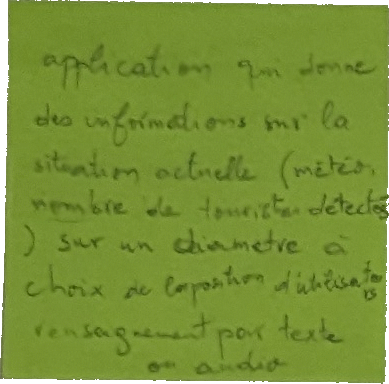 application qui donne
des informations sur la
situation actuelle (météo,
nombre de touristes détectés
) sur un diamètre à
choix de la position d'utilisateurs
renseignement par texte
ou audio